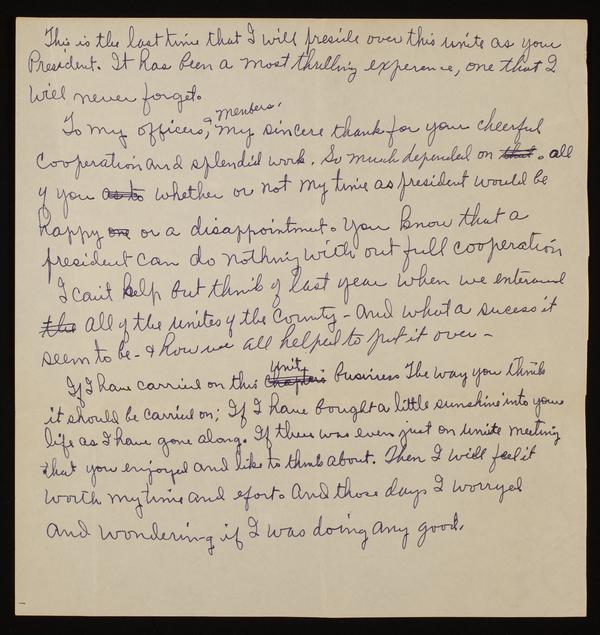 This is the last time that I will preside over this unite as your
President. It has been a most thrilling experence, one that I
will never forget.
To my officers, & members, my sincere thanks for your cheerful
cooperation and splendid work. So much depended on that. all
of you as to whether or not my time as president would be
happy one or a disappointment. You know that a
president can do nothing with out full cooperation
I can't help but think of last year when we entertained
the all of the unites of the County - and what a sucess it
seem to be - & how we all helped to put it over -
If I have carried on this Chapter's Unit business the way you think
it should be carried on; If I have bought a little sunshine into your
life as I have gone along. If there was even just on unite meeting
that you enjoyed and like to think about. Then I will feel it
worth my time and efort. And those days I worryed
and wondering if I was doing any good.